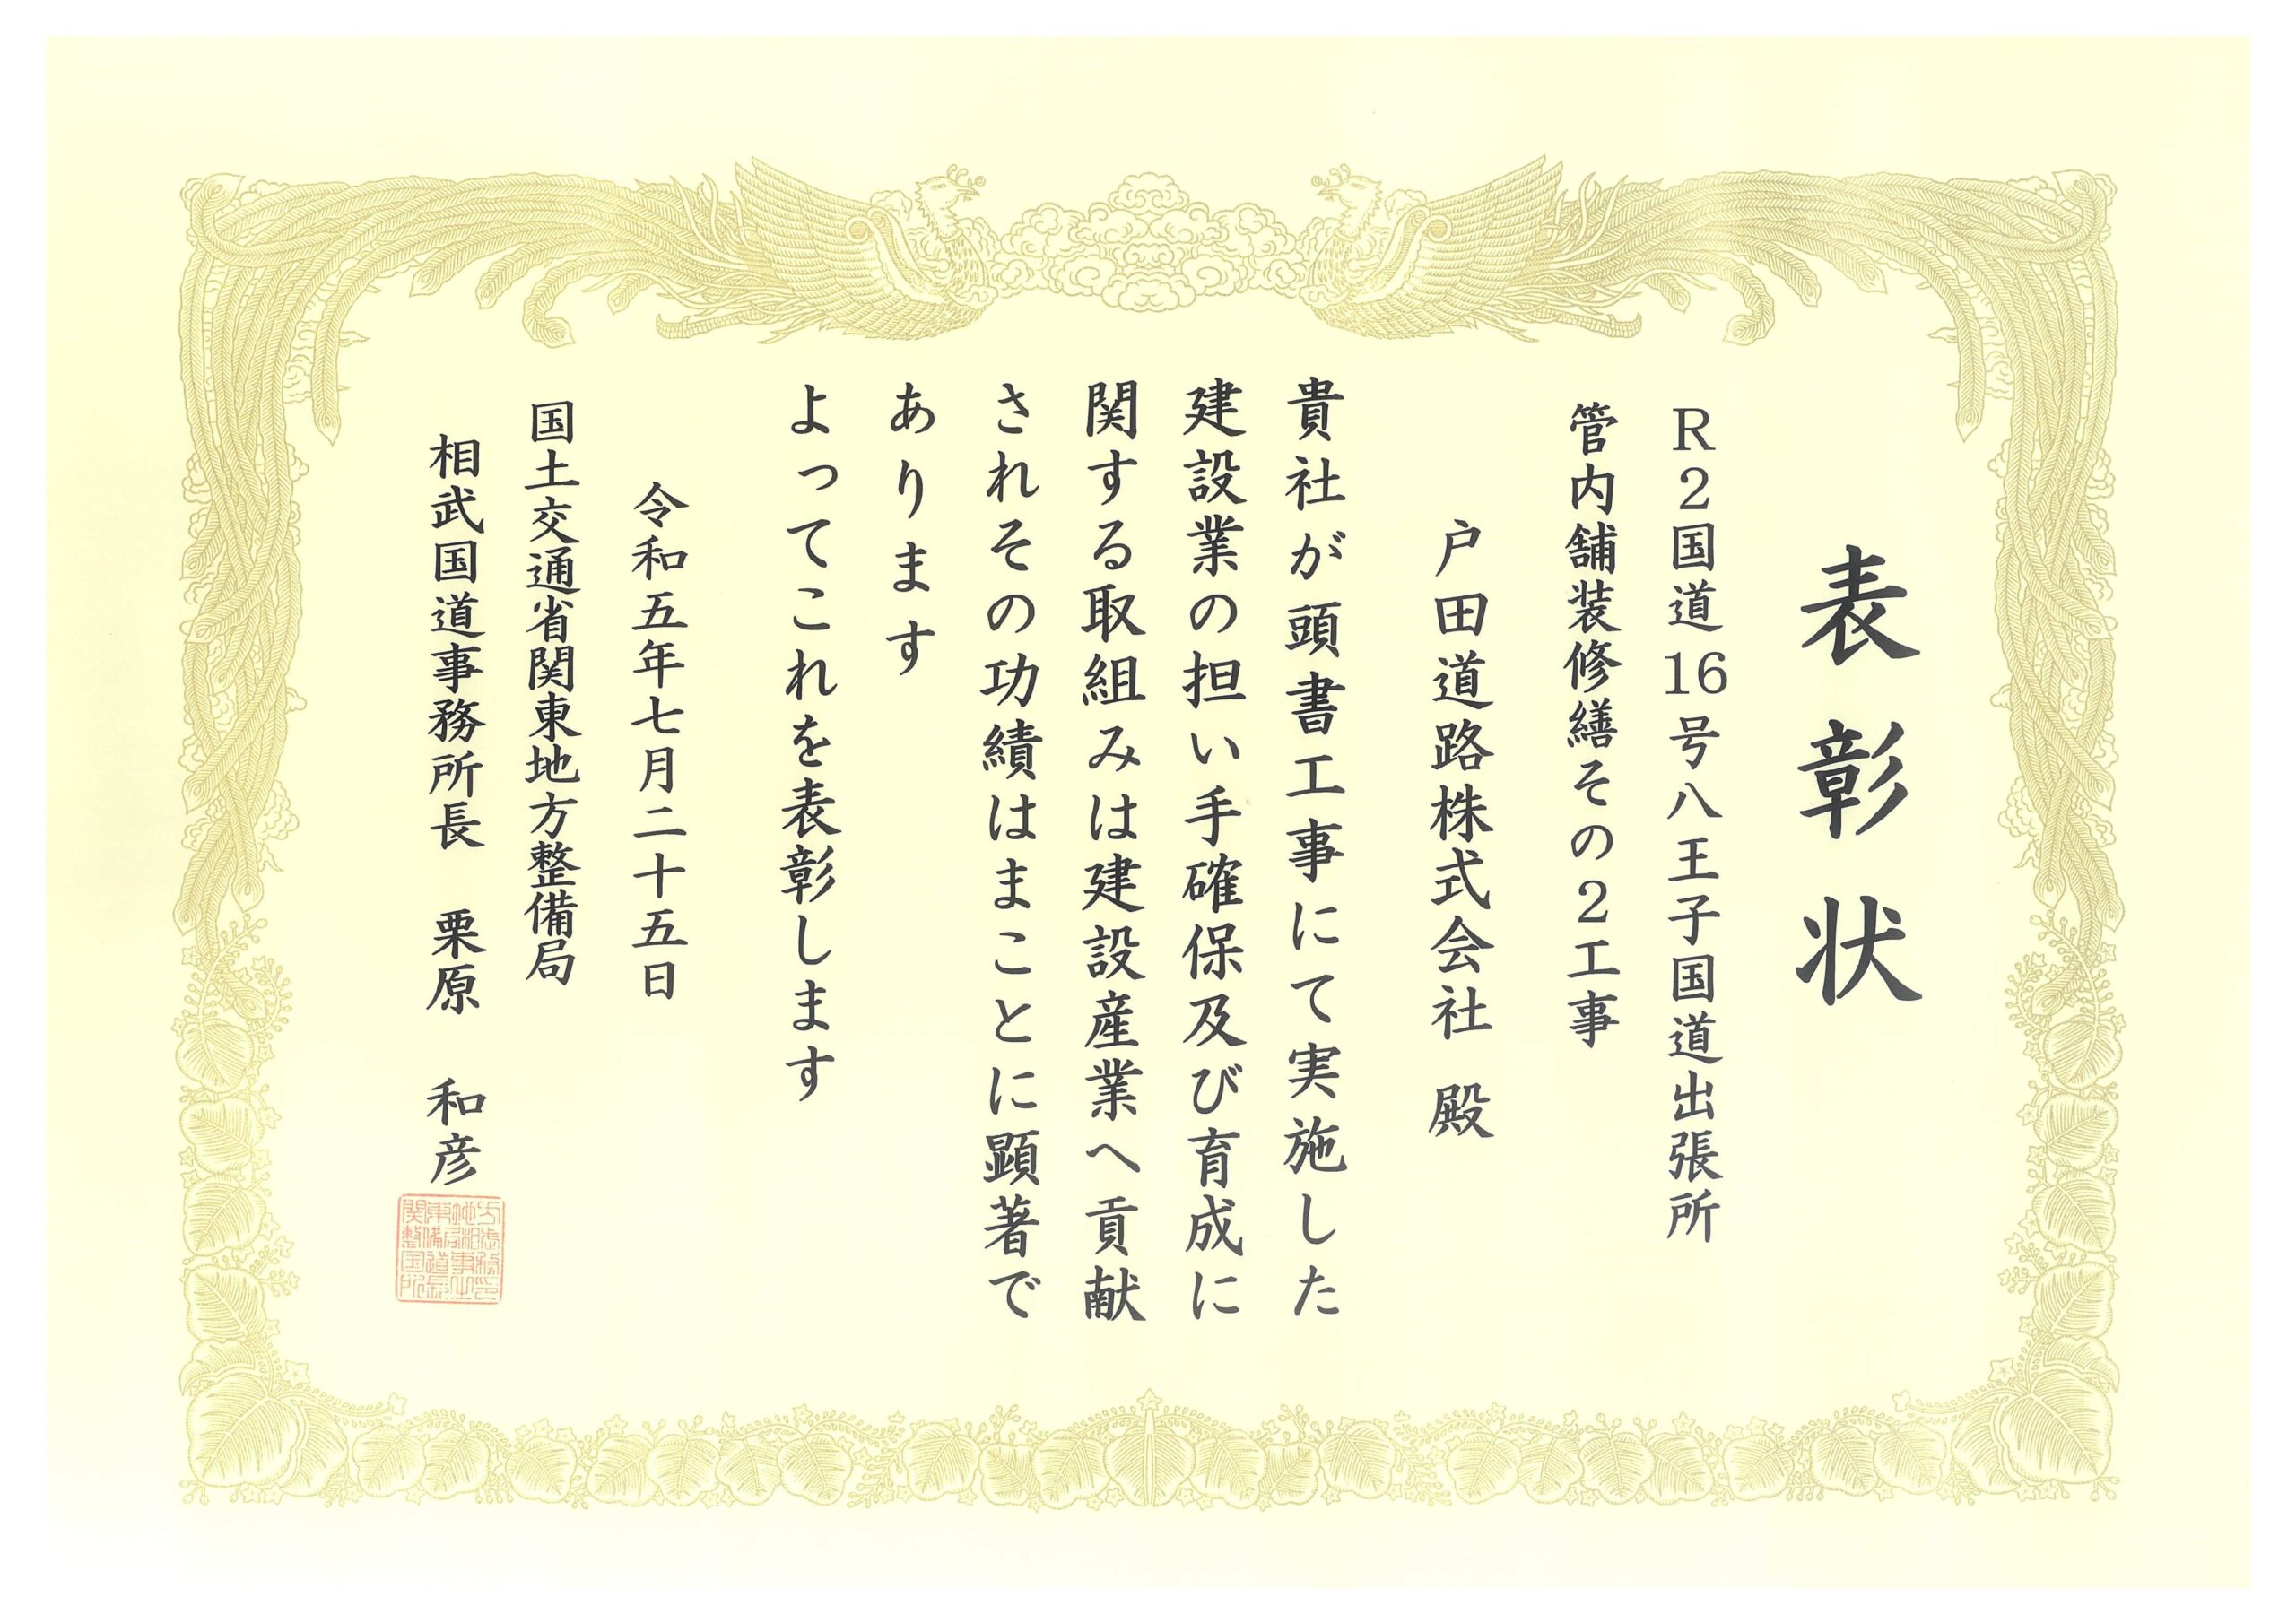 表彰状
R2国道16号八王子国道出張所
管内舗装修繕その2工事
戸田道路株式会社 殿
貴社が頭書工事にて実施した
建設業の担い手確保及び育成に
関する取組みは建設産業へ貢献
されその功績はまことに顕著で
あります
よってこれを表彰します
令和五年七月二十五日
国土交通省関東地方整備局
相武国道事務所長 栗原 和彦